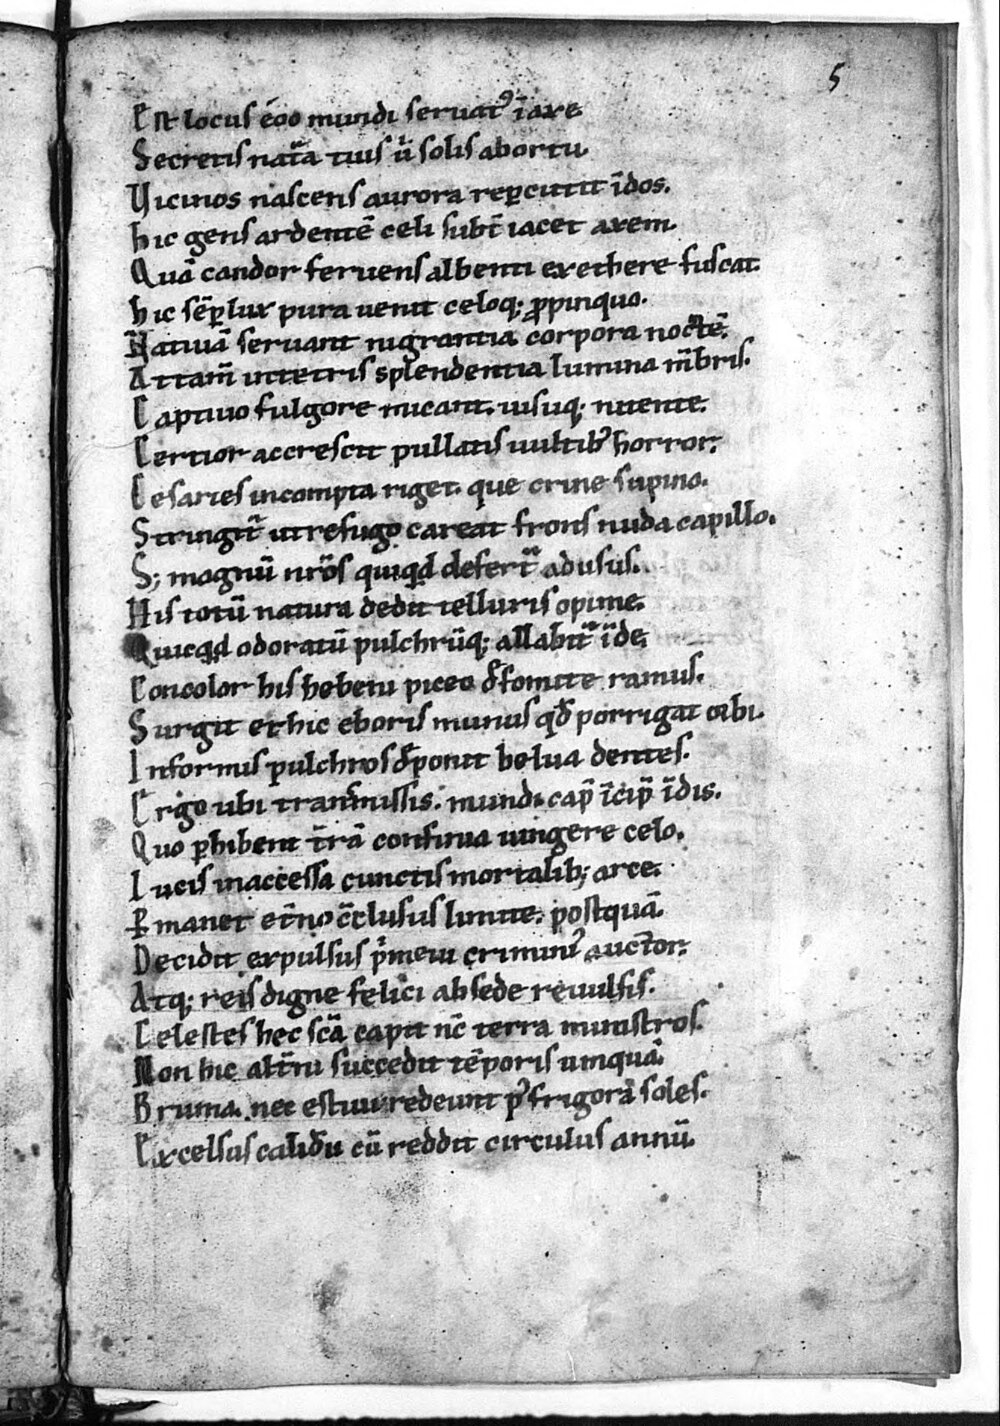 5
Est locus eoo mundi seruatꝰ ī axe
Secretis natᷓa tuis ū solis abortu.
Vicinos nascens aurora reꝑcutit īdos.
hic gens ardentē celi subt̄ iacet axem.
Quā candor feruens albenti ex ethere fuscat.
hic sēꝑ lux pura uenit celoq; ꝓpinquo.
Natiuā seruant nigrantia corpora noctē.
Attam̄ in tetris splendentia lumina m̄bris.
Captiuo fulgore micant. uisuq; nitente.
Certior accrescit pullatis uultibꝰ horror.
Cesaries incompta riget. que crine supino.
Stringit̄ ut refugo careat frons nuda capillo.
S; magnū nr̄os quiqd defert᷑ ad usus.
His totū natura dedit telluris opime.
Quicqd odoratū pulchrūq; allabit᷑ īde.
Concolor his hebeni piceo đ fomite ramus.
Surgit et hic eboris munus qđ porrigat orbi.
Informis pulchros đponit belua dentes.
Ergo ubi transmissis. mundi cap̄ īcip̄ īdis.
Quo ꝑhibent t̄rā confinia iungere celo.
Lucis inaccessa cunctis mortalib; arce.
Ꝑmanet et̄no c̄clusus limite. postquā.
Decidit expulsus pͥmeui criminiˀ auctor.
Atq; reis digne felici ab sede reuulsis.
Celestes hec scā capit nc̄ terra ministros.
Non hic alt̄ni succedit tēporis umquā.
Bruma. nec estiui redeunt pꝰ frigora soles.
Excelsus calidū cū reddit circulus annū.